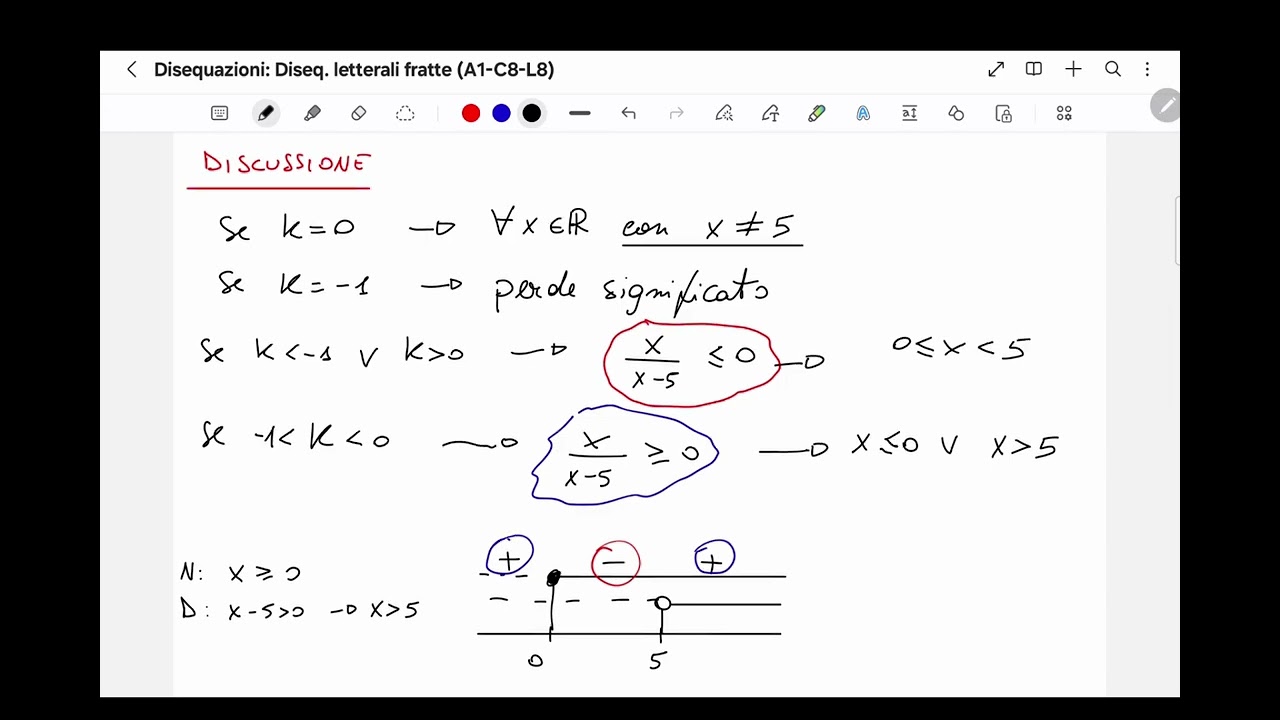 Disequazioni: Diseq. letterali fratte (A1-C8-L8)
DISCUSSIONE
Se k=0 → ∀x∈ℝ con x≠5
Se k=-1 → perde significato
Se k<-1 ∨ k>0 → x/(x-5) ≤ 0 → 0≤x<5
Se -1<k<0 → x/(x-5) ≥ 0 → x≤0 ∨ x>5
+ - +
N: x≥0
D: x-5>0 → x>5
0 5